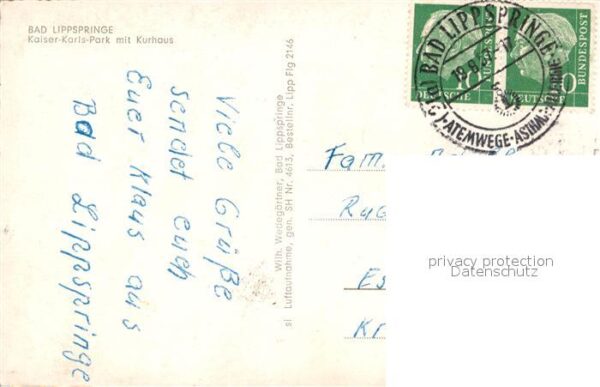 BAD LIPPSPRINGE
Kaiser-Karls-Park mit Kurhaus
Viele Grüße
sendet euch
Euer Klaus aus
Bad Lippspringe
Wilh. Wedegärtner, Bad Lippspringe
sl Luftaufnahme, gen. SH Nr. 4613, Bestellnr. Lipp Flg 2146
BAD LIPPSPRINGE
ATEMWEGE-ASTHMA
DEUTSCHE
BUNDESPOST
DEUTSCHE
BUNDESPOST
Fam.
privacy protection
Datenschutz